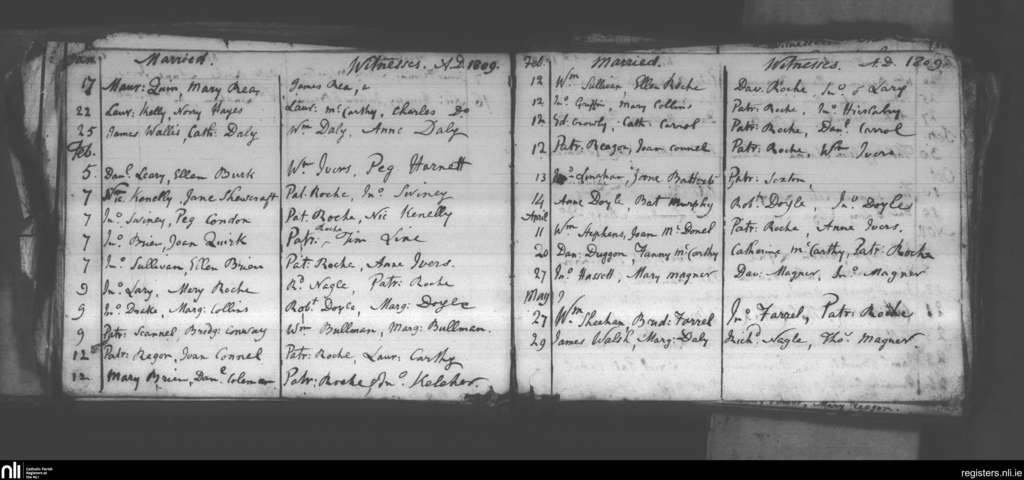 Jan. Married. Witnesses. A.D. 1809.
17 Maur: Quin, Mary Rea, James Rea,
22 Laur: Kelly, Nory Hayes Laur: McCarthy, Charles Do
25 James Wallis, Cath: Daly Wm Daly, Anne Daly
Feb.
5. Danl. Leary, Ellen Buck Wm Ivers, Peg Harnett
7 Nic Kenelly, Jane Showcraft Pat. Roche, Jno Swiney
7 Jno. Swiney, Peg Condon Pat. Roche, Nic Kenelly
7 Jno. Brien, Joan Quirk Patr: Roche, Tim Line
7 Jno. Sullivan, Ellen Brien Pat: Roche, Anne Ivers.
9 Jno. Lary, Mery Roche Rd Nagle, Patr: Roche
9 Jno. Drake, Marg: Collins Robt Doyle, Marg: Doyle
9 Patr: Scannel, Bridg: Conway Wm Bullman, Marg: Bullman.
12 Patr: Ragon, Joan Connel Patr: Roche, Laur: Carthy
12. Mary Brien, Danl. Coleman Patr: Roche & Jno. Keleher.
Feb. Married. Witnesses. A.D. 1809
12 Wm Sullivan, Ellen Roche Dav: Roche, Jno. Lary
12 Jno. Griffin, Mary Collins Patr: Roche, Jno.
12 Ed. Crowly, Cath: Carrol Patr: Roche, Danl. Carrol
12 Patr: Reagon, Joan Connel Patr: Roche, Wm Ivers
13 Jno. Linehan, Jane Patr: Sexton,
14 Anne Doyle, Bat Murphy Robt. Doyle Jno. Doyle
April
11 Wm Stephens, Joan McDonel Patr: Roche, Anne Ivers.
20 Dan: Duggan Fanny McCarthy Catherine McCarthy, Patr: Roche
27 Jno. Hassett, Mary Magner Dav: Magner, Jno. Magner
May
27 Wm. Sheehan, Brid: Farrel Jno. Farrel, Patr: Roche
29 James Walsh, Marg: Daly Richd. Nagle, Thos. Magner
nli Catholic Parish
Registers at
the NLI
registers.nli.ie